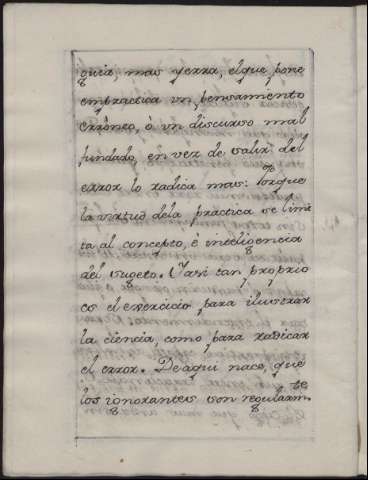 guia, mas yerra, el que pone
empractica vn pensamiento
erròneo, ò vn discurso mal
fundado, en vez de salir del
error lo radica mas: Porque
la virtud dela practica se limi
ta al concepto, è inteligencia
del sugeto. Y asi tan proprio
es el exercicio para ilustrar
la ciencia, como para radicar
el error. De aqui nace, que
los ignorantes son regularm.te